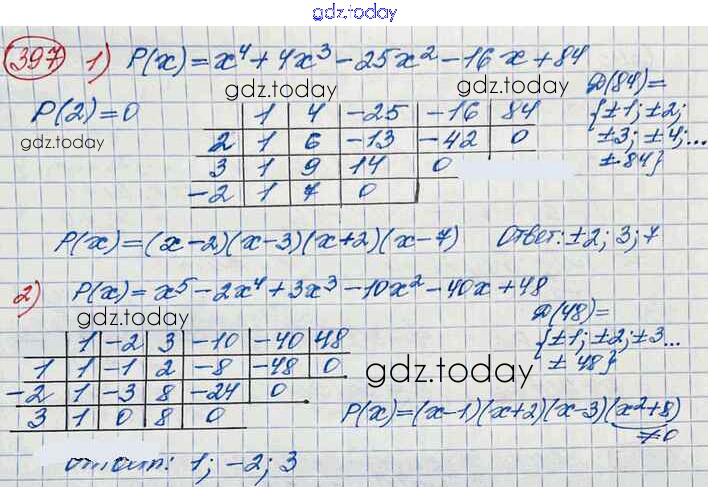 gdz.today
397 1) P(x)=x⁴+4x³-25x²-16x+84
gdz.today gdz.today
P(2)=0
Д(84)=
{±1;±2;
±3;±4;...
±84}
gdz.today
1 4 -25 -16 84
2 1 6 -13 -42 0
3 1 9 14 0
-2 1 7 0
P(x)=(x-2)(x-3)(x+2)(x-7) Ответ: ±2; 3; 7
2) P(x)=x⁵-2x⁴+3x³-10x²-40x+48
gdz.today
Д(48)=
{±1;±2;±3...
±48}
1 -2 3 -10 -40 48
1 1 -1 2 -8 -48 0
-2 1 -3 8 -24 0
3 1 0 8 0
gdz.today
P(x)=(x-1)(x+2)(x-3)(x²+8)
≠0
ответ: 1; -2; 3